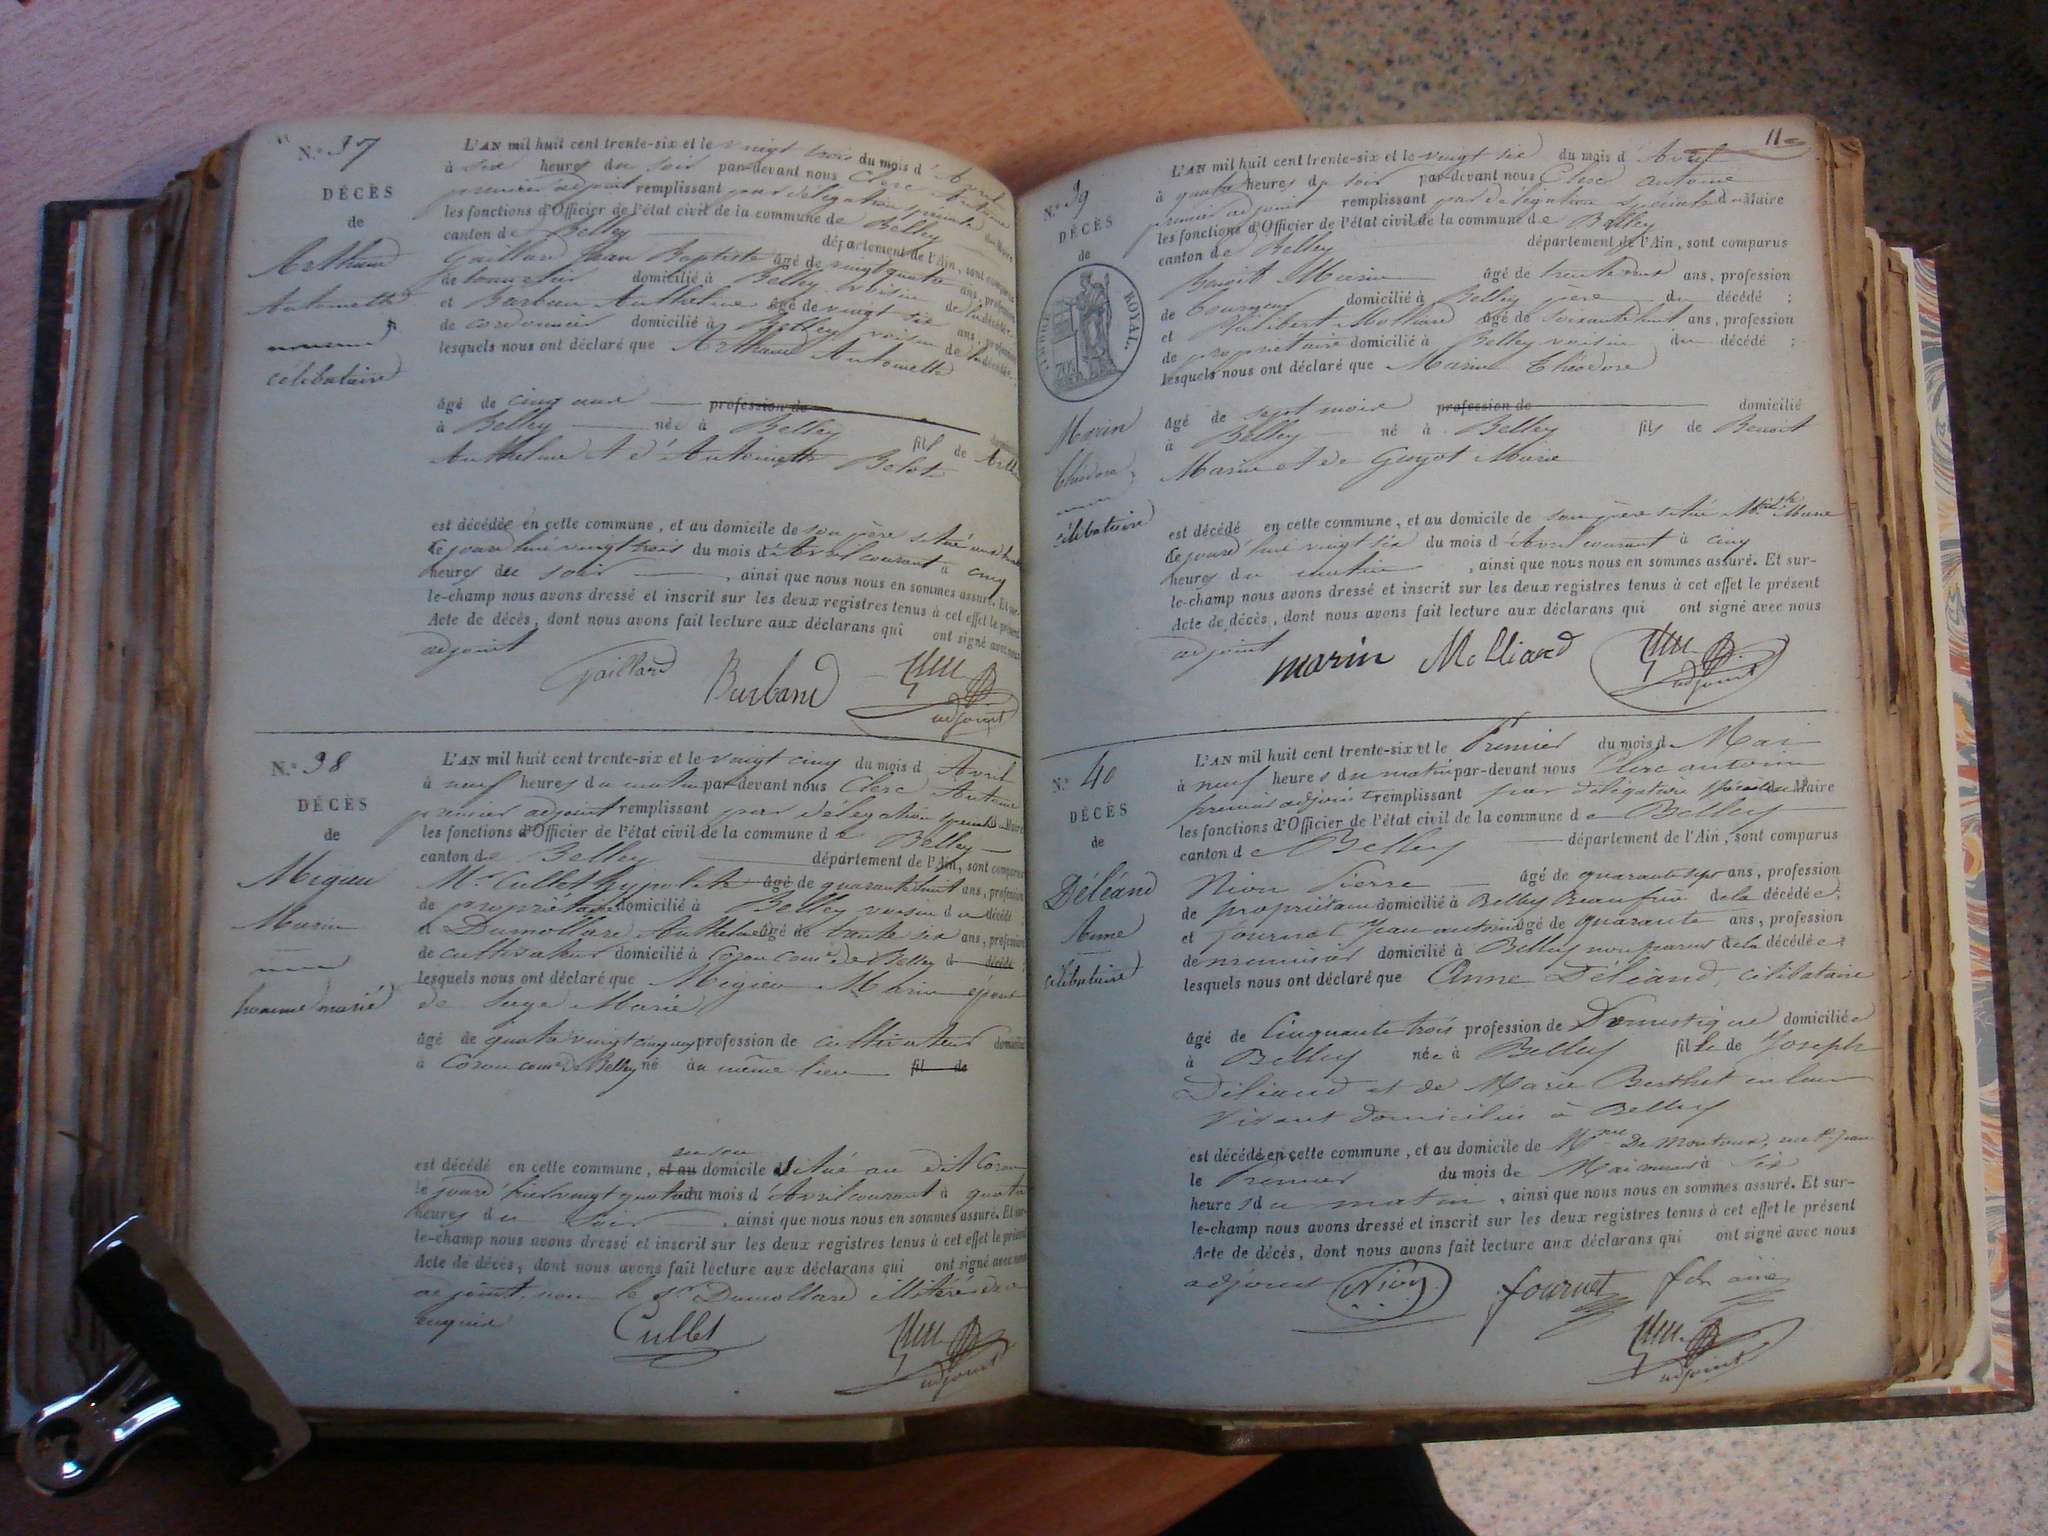 N.º 37
DÉCÈS
de
Arthaud
Antoinette
mineure
célibataire
L'AN mil huit cent trente-six et le vingt trois du mois d'Avril
à six heures du soir par-devant nous Clerc Antoine
premier adjoint remplissant par délégation spéciale du Maire
les fonctions d'Officier de l'état civil de la commune de Belley
canton de Belley département de l'Ain, sont comparus
Gaillard Jean Baptiste âgé de vingt quatre ans, profession
de domicilié à Belley voisin de la décédée
et Anthelme âgé de vingt six ans, profession
de cordonnier domicilié à Belley voisin de la décédée;
lesquels nous ont déclaré que Arthaud Antoinette
âgé de cinq ans profession de
à Belley née à Belley fil de
Anthelme et d'Antoinette Belot
est décédée en cette commune, et au domicile de son père situé
le jourd'hui vingt trois du mois d'Avril courant à cinq
heures du soir, ainsi que nous nous en sommes assuré. Et sur-
le-champ nous avons dressé et inscrit sur les deux registres tenus à cet effet le présent
Acte de décès, dont nous avons fait lecture aux déclarans qui ont signé avec nous
adjoint
Gaillard Barband
adjoint
N.º 38
DÉCÈS
de
Migieu
Marin
homme marié
L'AN mil huit cent trente-six et le vingt cinq du mois d Avril
à neuf heures du matin par-devant nous Clerc Antoine
premier adjoint remplissant par délégation spéciale du Maire
les fonctions d'Officier de l'état civil de la commune de Belley
canton de Belley département de l'Ain, sont comparus
Mr Cullet hypolite âgé de quarante huit ans, profession
de propriétaire domicilié à Belley voisin du décédé
et Dumollard Anthelme âgé de trente six ans, profession
de cultivateur domicilié à Coron com.e de Belley d décédé;
lesquels nous ont déclaré que Migieu Marin époux
de Serge Marie
âgé de quatre vingt cinq ans profession de cultivateur domicilié
à Coron com.e de Belley né au même lieu fil de
en son
est décédé en cette commune, et au domicile situé au dit Coron
le jourd'hier vingt quatre du mois d'Avril courant à quatre
heures du soir, ainsi que nous nous en sommes assuré. Et sur-
le-champ nous avons dressé et inscrit sur les deux registres tenus à cet effet le présent
Acte de décès, dont nous avons fait lecture aux déclarans qui ont signé avec nous
adjoint, non le Sr Dumollard illitéré de ce
enquis
Cullet
adjoint
11
N.º 39
DÉCÈS
de
TIMBRE ROYAL.
Marin
Théodore
célibataire
L'AN mil huit cent trente-six et le vingt six du mois d'Avril
à quatre heures du soir par-devant nous Clerc antoine
premier adjoint remplissant par délégation spéciale du Maire
les fonctions d'Officier de l'état civil de la commune de Belley
canton de Belley département de l'Ain, sont comparus
Benoit Marin âgé de trente ans, profession
de domicilié à Belley père du décédé;
et Philibert Molliard âgé de soixante huit ans, profession
de propriétaire domicilié à Belley voisin du décédé;
lesquels nous ont déclaré que Marin Théodore
âgé de sept mois profession de domicilié
à Belley né à Belley fils de Benoit
Marin et de Guyot Marie
est décédé en cette commune, et au domicile de son père situé
le jourd'hui vingt six du mois d'Avril courant à cinq
heures du matin, ainsi que nous nous en sommes assuré. Et sur-
le-champ nous avons dressé et inscrit sur les deux registres tenus à cet effet le présent
Acte de décès, dont nous avons fait lecture aux déclarans qui ont signé avec nous
adjoint
marin Molliard
adjoint
N.º 40
DÉCÈS
de
Déléand
Anne
célibataire
L'AN mil huit cent trente-six et le Premier du mois de Mai
à neuf heures du matin par-devant nous Clerc antoine
premier adjoint remplissant par délégation spéciale du Maire
les fonctions d'Officier de l'état civil de la commune de Belley
canton de Belley département de l'Ain, sont comparus
Nion Pierre âgé de quarante sept ans, profession
de propriétaire domicilié à Belley Beau frère de la décédée;
et fournet Jean antoine âgé de quarante ans, profession
de menuisier domicilié à Belley non parent de la décédée;
lesquels nous ont déclaré que Anne Déléand, célibataire
âgé de Cinquante trois profession de Domestique domiciliée
à Belley née à Belley fille de Joseph
Déléand et de Marie Berthet en leur
vivant domiciliés à Belley
est décédée en cette commune, et au domicile de Mme De Montoux, rue St Jean
le Premier du mois de Mai courant à six
heures du matin, ainsi que nous nous en sommes assuré. Et sur-
le-champ nous avons dressé et inscrit sur les deux registres tenus à cet effet le présent
Acte de décès, dont nous avons fait lecture aux déclarans qui ont signé avec nous
adjoint Nion fournet
adjoint